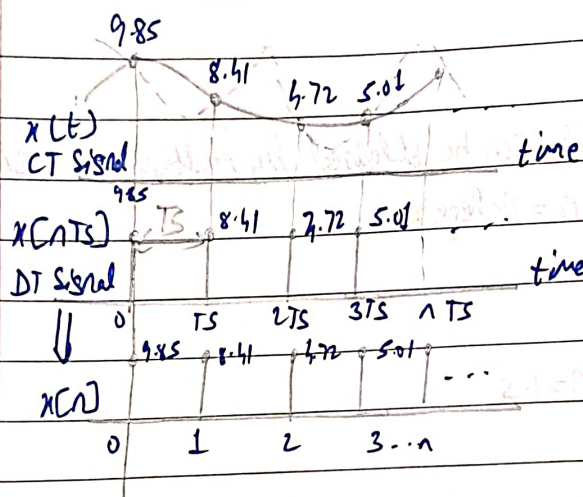 9.85
8.41
4.72 5.01
x(t)
CT Signal
time
9.85
x[nTs] Ts 8.41 4.72 5.01 ...
DT Signal
time
0 Ts 2Ts 3Ts n Ts
9.85 8.41 4.72 5.01 ...
x[n]
0 1 2 3...n